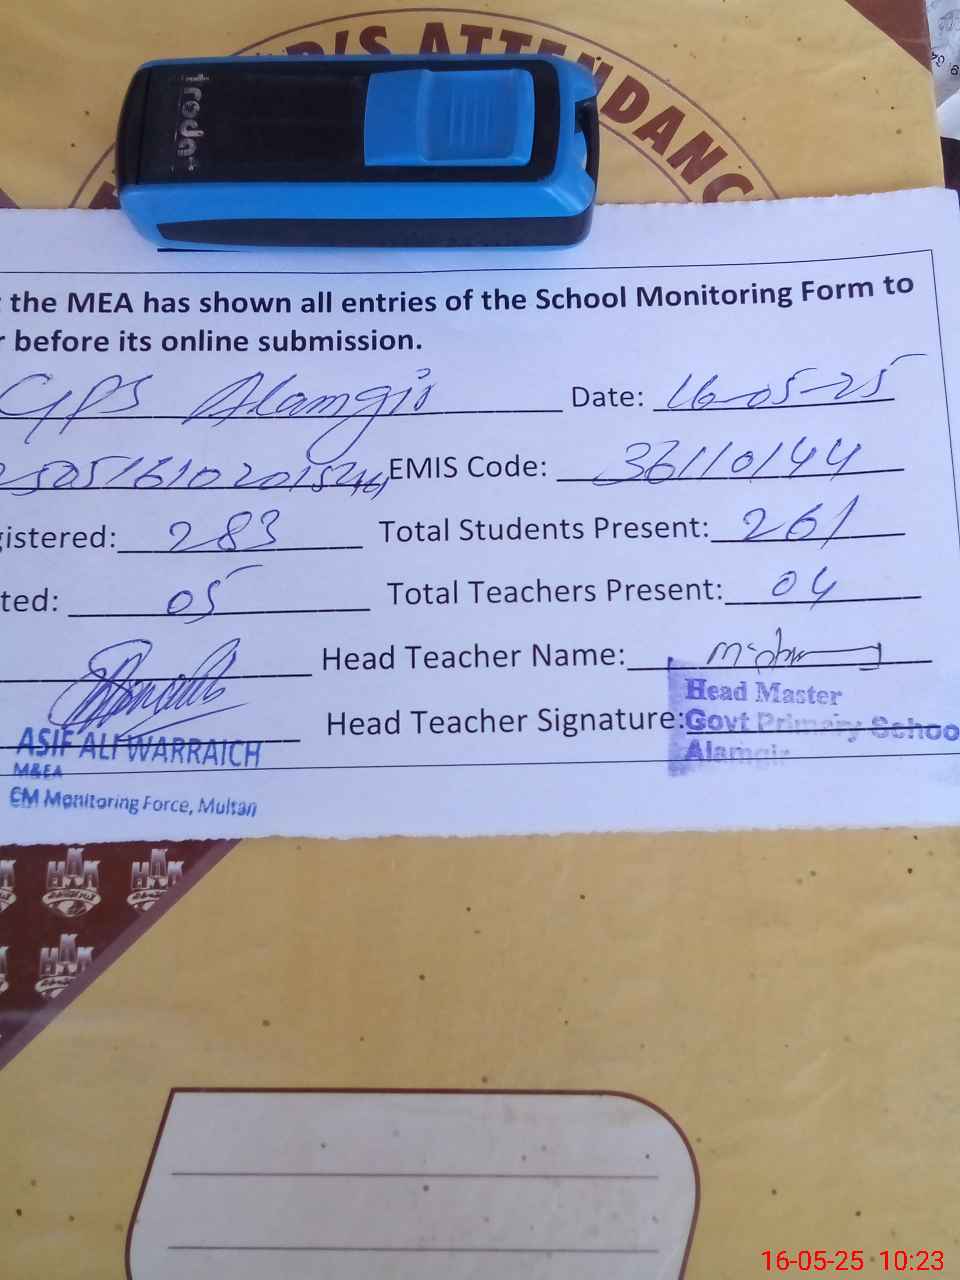 R'S ATTENDANC
roda
the MEA has shown all entries of the School Monitoring Form to
r before its online submission.
GPS Alamgir Date: 16-05-25
EMIS Code: 36110144
gistered: 283 Total Students Present: 261
ted: 05 Total Teachers Present: 04
Head Teacher Name:
Head Master
Head Teacher Signature: Govt Primary Schoo
Alamgir
ASIF ALI WARRAICH
M&EA
CM Monitoring Force, Multan
HKK HKK
HKK
16-05-25 10:23